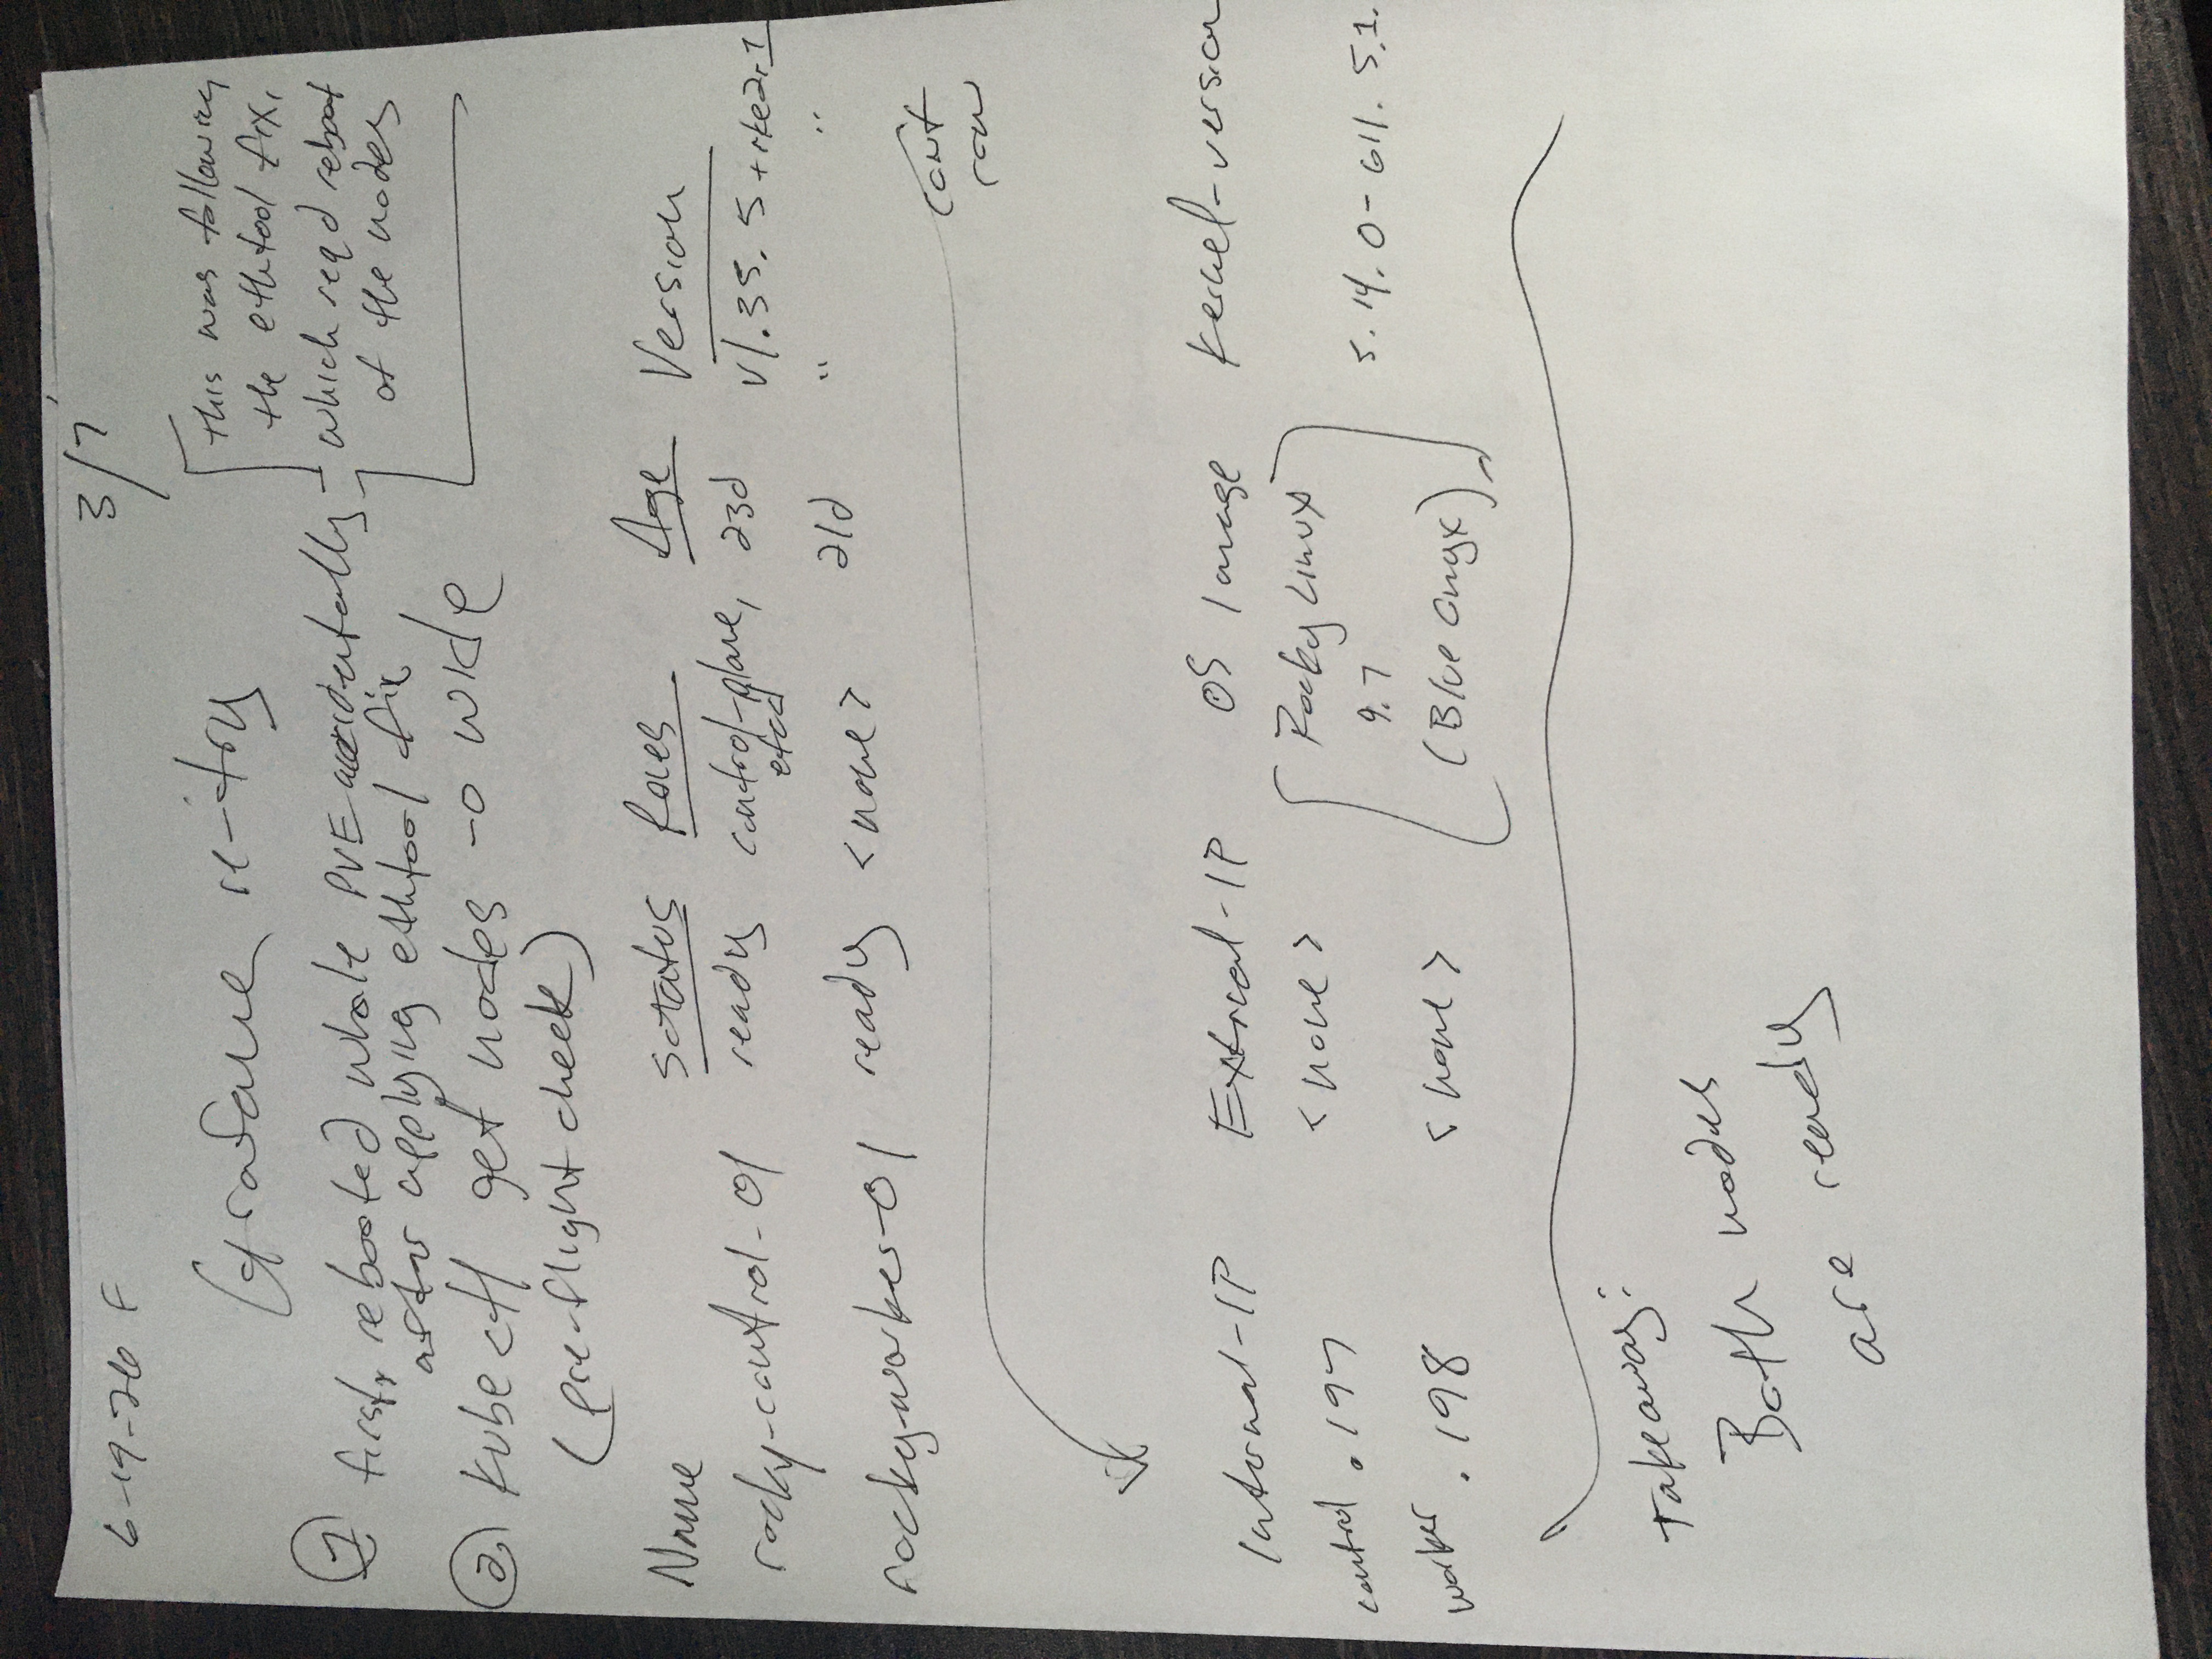 6-19-26 F
3/7
Grafana re-try
① first, rebooted whole PVE accidentally
after applying ethtool fix
[This was following
the ethtool fix,
which req'd reboot
of the nodes]
② kubectl get nodes -o wide
(pre-flight check)
Name status Roles Age Version
rocky-control-01 ready control-plane, etcd 23d v1.35.5+rke2r1
rocky-worker-01 ready <none> 21d " "
cont row
Internal-IP External-IP OS Image Kernel-version
control .197 <none> [Rocky Linux 5.14.0-611.5.1.
9.7
worker .198 <none> (Blue Onyx)]
Takeaway:
Both nodes
are ready